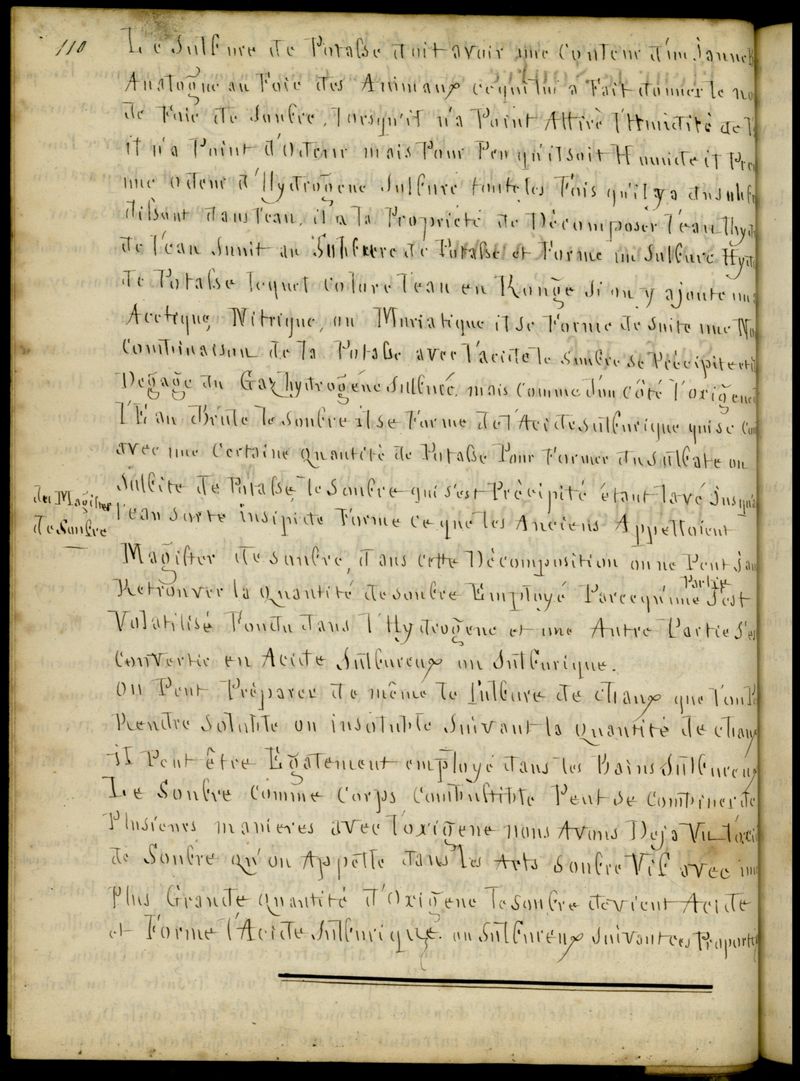 110
Le Sulfure de Potasse doit avoir une Couleur d'un Jaune
Analogue au Foie des Animaux ce qui lui a Fait donner le
de Foie de Soufre, lorsqu'il n'a Point Attiré l'Humidité de
il n'a Point d'Odeur mais Pour Peu qu'il soit Humide il
une odeur d'Hydrogene Sulfuré toutes les Fois qu'il y a du
dissout dans l'eau, il a la Proprieté de Décomposer l'eau
de l'eau Sunit au Sulfure de Potasse et Forme un Sulfure
de Potasse lequel colore l'eau en Rouge si on y ajoute
Acetique, Nitrique, ou Muriatique il se Forme de suite une
Combinaison de la Potasse avec l'acide le Soufre se Précipite et il
Degage du Gaz hydrogéne Sulfuré, mais comme d'un Côté l'origene
l'Eau Brule le Soufre il se Forme de l'Acide Sulfurique qui se
avec une Certaine quantité de Potasse Pour Former du Sulfate ou
Sulfite de Potasse le Soufre qui s'est Précipité étant lavé
du Magister
de Soufre
l'eau Sorte insipide Forme ce que les Anciens Appelloient
Magister de Soufre, dans cette Décomposition on ne Peut
Retrouver la Quantité de Soufre Employé Parcequ'une Partie s'est
Volatilisé Fondu dans l'Hydrogene et une Autre Partie
Convertie en Acide Sulfureux ou Sulfurique.
On Peut Préparer de même le Sulfure de Chaux que l'on
Rendre Soluble ou insoluble Suivant la Quantité de
il Peut être Egalement employé dans les Bains Sulfureux
Le Soufre Comme Corps Combustible Peut se Combiner de
Plusieurs manieres avec l'oxigene nous Avons Deja Vu
de Soufre qu'on Appelle dans les Arts Soufre Vif avec
Plus Grande quantité d'Oxigene le Soufre devient Acide
et Forme l'Acide Sulfurique ou Sulfureux Suivant ces